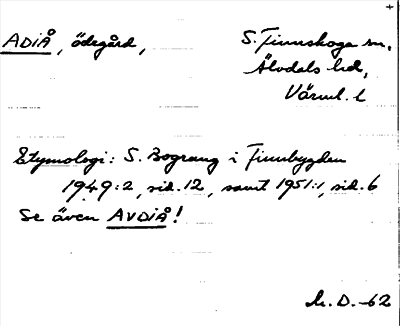 ADIÅ, ödegård, S. Finnskoga sn,
Älvdals hd,
Värml. l
Etymologi: S. Bograng i Finnbygden
1949:2, sid. 12, samt 1951:1, sid. 6
Se även AVDIÅ!
M. D. -62